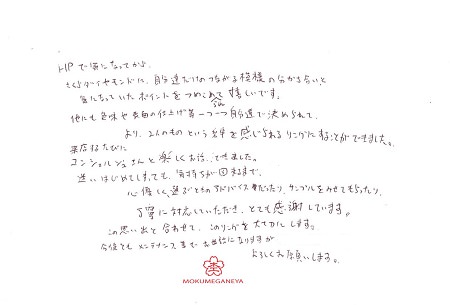 HPで気になってから、
さくらダイヤモンドに、自分達だけのつながる模様の分かち合いと
気になっていたポイントをつめこめて嬉しいです。
他にも色味や表面の仕上げ等一つ一つ自分達で決められて、
より、2人のものという を感じられるリングにすることができました。
来店するたびに
コンシェルジュさんと楽しくお話、できました。
迷いはじめてしまっても、気持ちが まるまで、
心優しく選ぶときのアドバイス だったり、サンプルをみせてもらったり、
丁寧に対応していただき、とても感謝しています。
この思い出と合わせて、このリングを大切にします。
今後ともメンテナンスまで、お世話になりますが
よろしくお願いします。
MOKUMEGANEYA